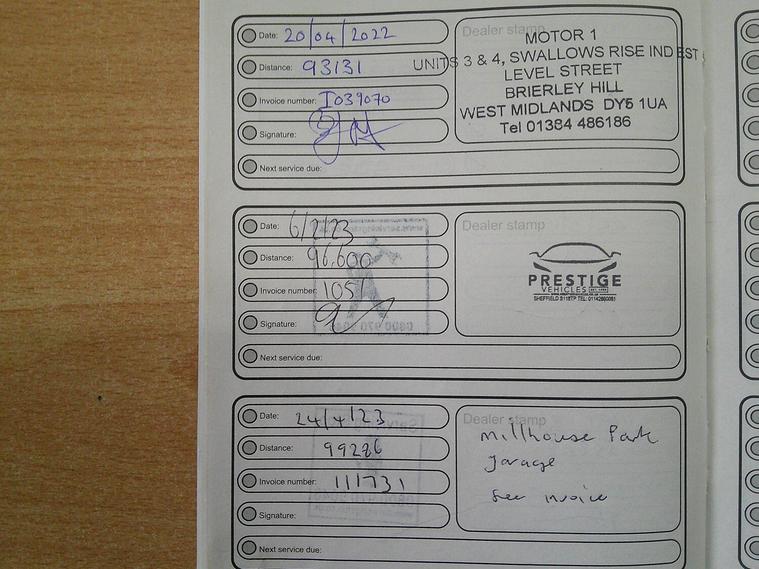 Date: 20/04/2022
Distance: 93131
Invoice number: I039070
Signature:
Next service due:
Dealer stamp
MOTOR 1
UNITS 3 & 4, SWALLOWS RISE IND EST
LEVEL STREET
BRIERLEY HILL
WEST MIDLANDS DY5 1UA
Tel 01384 486186
Date: 6/2/23
Distance: 96,600
Invoice number: 105
Signature:
Next service due:
Dealer stamp
PRESTIGE
VEHICLES
Date: 24/4/23
Distance: 99286
Invoice number: 111731
Signature:
Next service due:
Dealer stamp
Millhouse Park
Garage
See invoice